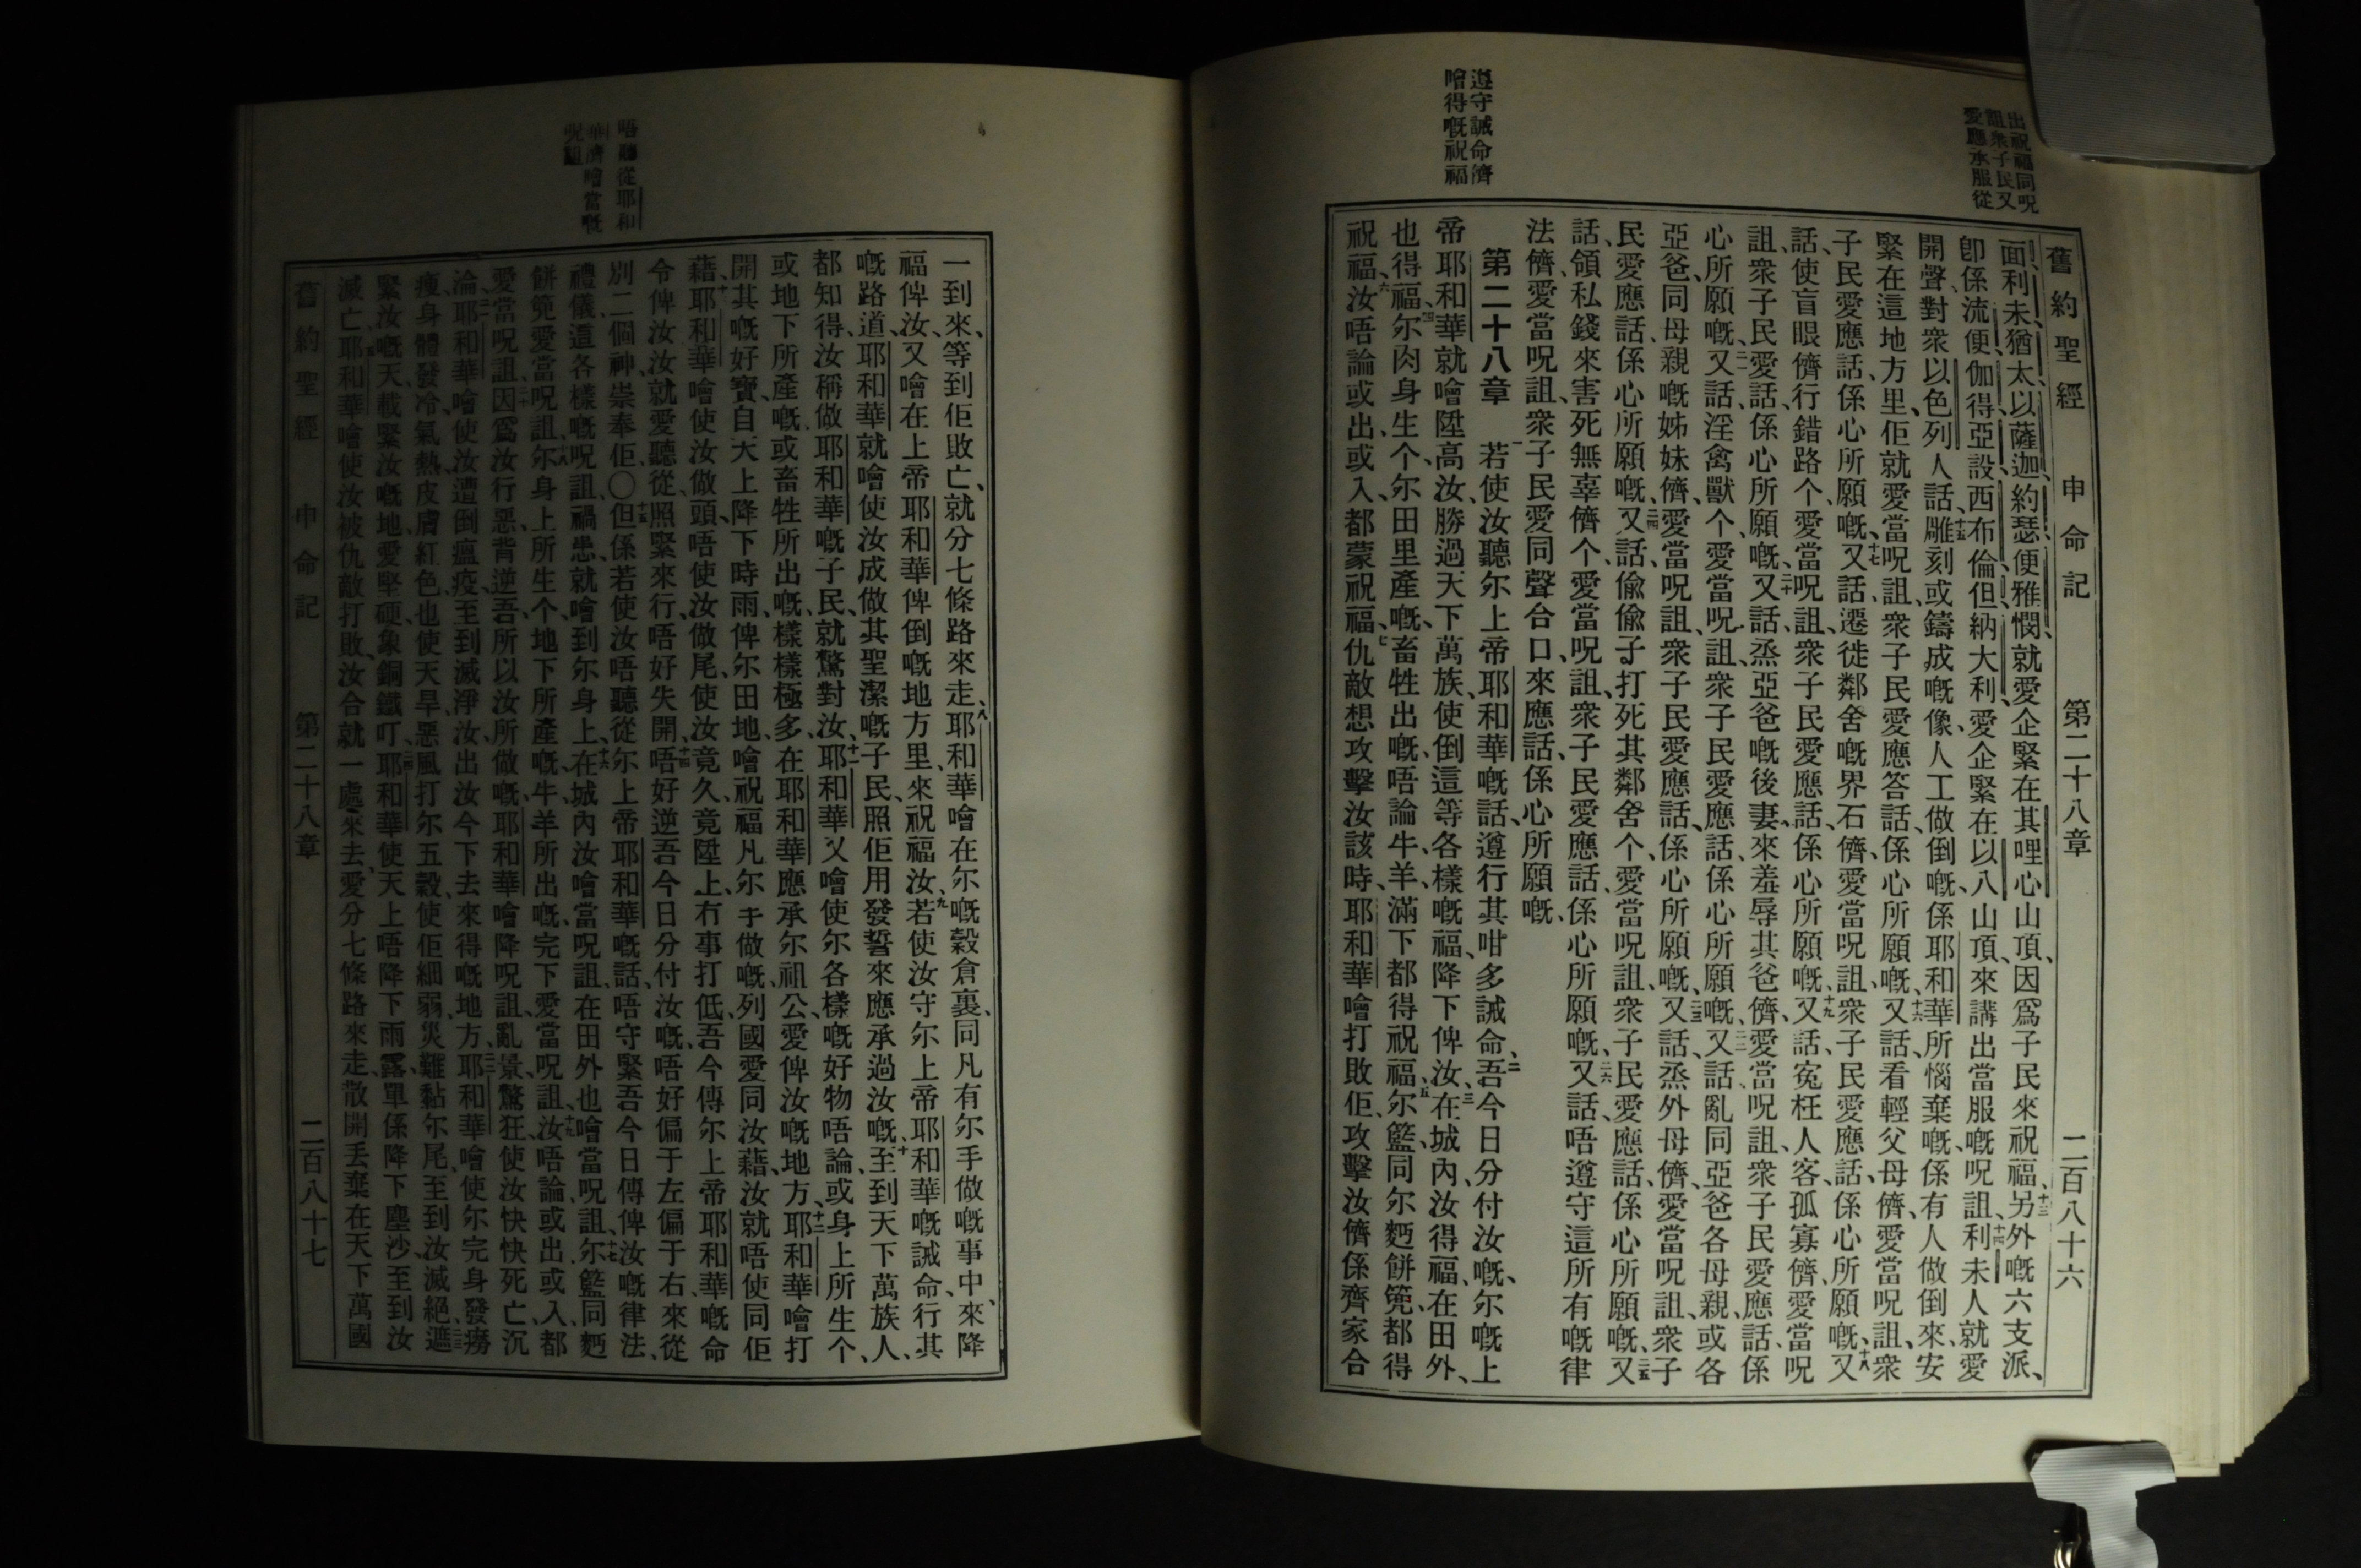 出祝福同呪
詛衆子民又
愛應承服從
遵守誡命儕
噲得嘅祝福
舊約聖經 申命記 第二十八章 二百八十六
面、利未、猶太、以薩迦、約瑟、便雅憫、就愛企緊在其哩心山頂、因爲子民來祝福、十三另外嘅六支派、
卽係流便、伽得、亞設、西布倫、但、納大利、愛企緊在以八山頂、來講出當服嘅呪詛、十四利未人就愛
開聲、對衆以色列人話、十五雕刻或鑄成嘅像、人工做倒嘅、係耶和華所惱棄嘅、係有人做倒來、安
緊在這地方里、佢就愛當呪詛、衆子民愛應答話、係心所願嘅、十六又話、看輕父母儕、愛當呪詛、衆
子民愛應話、係心所願嘅、十七又話、遷徙鄰舍嘅界石儕、愛當呪詛、衆子民愛應話、係心所願嘅、十八又
話、使盲眼儕行錯路个、愛當呪詛、衆子民愛應話、係心所願嘅、十九又話、寃枉人客、孤寡儕、愛當呪
詛、衆子民愛話、係心所願嘅、二十又話、烝亞爸嘅後妻、來羞辱其爸儕、愛當呪詛、衆子民愛應話、係
心所願嘅、二一又話、淫禽獸个、愛當呪詛、衆子民愛應話、係心所願嘅、二二又話、亂同亞爸各母親、或各
亞爸、同母親嘅姊妹儕、愛當呪詛、衆子民愛應話、係心所願嘅、二三又話、烝外母儕、愛當呪詛、衆子
民愛應話、係心所願嘅、二四又話、偸偸子打死其鄰舍个、愛當呪詛、衆子民愛應話、係心所願嘅、二五又
話、領私錢來害死無辜儕个、愛當呪詛、衆子民愛應話、係心所願嘅、二六又話、唔遵守這所有嘅律
法儕、愛當呪詛、衆子民愛同聲合口、來應話、係心所願嘅、
第二十八章 一若使汝聽尔上帝耶和華嘅話、遵行其咁多誡命、二吾今日分付汝嘅、尔嘅上
帝耶和華就噲陞高汝、勝過天下萬族、使倒這等各樣嘅福、降下俾汝、三在城內、汝得福、在田外、
也得福、四尔肉身生个、尔田里產嘅、畜牲出嘅、唔論牛、羊、滿下都得祝福、五尔籃、同尔麪餅篼、都得
祝福、六汝唔論或出、或入、都蒙祝福、七仇敵想攻擊汝該時、耶和華噲打敗佢、攻擊汝儕係齊家合
唔聽從耶和
華儕噲當嘅
呪詛
一到來、等到佢敗亡、就分七條路來走、八耶和華噲在尔嘅穀倉裏、同凡有尔手做嘅事中、來降
福俾汝、又噲在上帝耶和華俾倒嘅地方里、來祝福汝、九若使汝守尔上帝耶和華嘅誡命、行其
嘅路道、耶和華就噲使汝成做其聖潔嘅子民、照佢用發誓來應承過汝嘅、十至到天下萬族人、
都知得、汝稱做耶和華嘅子民、就驚對汝、十一耶和華又噲使尔各樣嘅好物、唔論或身上所生个、
或地下所產嘅、或畜牲所出嘅、樣樣極多、在耶和華應承尔祖公、愛俾汝嘅地方、十二耶和華噲打
開其嘅好寶、自天上降下時雨、俾尔田地、噲祝福凡尔手做嘅、列國愛同汝藉、汝就唔使同佢
藉、十三耶和華噲使汝做頭、唔使汝做尾、使汝竟久竟陞上、冇事打低、吾今傳尔上帝耶和華嘅命
令俾汝、汝就愛聽從、照緊來行、唔好失開、十四唔好逆吾今日分付汝嘅、唔好偏于左偏于右、來從
別二個神、崇奉佢、〇十五但係若使汝唔聽從尔上帝耶和華嘅話、唔守緊吾今日傳俾汝嘅律法、
禮儀、這各樣嘅呪詛、禍患、就噲到尔身上、十六在城內汝噲當呪詛、在田外也噲當呪詛、十七尔籃同麪
餅篼愛當呪詛、十八尔身上所生个、地下所產嘅、牛羊所出嘅、完下愛當呪詛、十九汝唔論或出、或入、都
愛當呪詛、二十因爲汝行惡、背逆吾、所以汝所做嘅、耶和華噲降呪詛、亂景、驚狂、使汝快快死亡、沉
淪、二一耶和華噲使汝遭倒瘟疫、至到滅淨汝、出汝今下去來得嘅地方、二二耶和華噲使尔完身發癆、
瘦、身體發冷、氣熱、皮膚紅色、也使天旱、惡風打尔五穀、使佢細弱、災難黏尔尾、至到汝滅絕、二三遮
緊汝嘅天、載緊汝嘅地、愛堅硬、象銅鐵叮、二四耶和華使天上唔降下雨露、單係降下塵沙、至到汝
滅亡、二五耶和華噲使汝被仇敵打敗、汝合就一處來去、愛分七條路來走、散開丟棄在天下萬國
舊約聖經 申命記 第二十八章 二百八十七